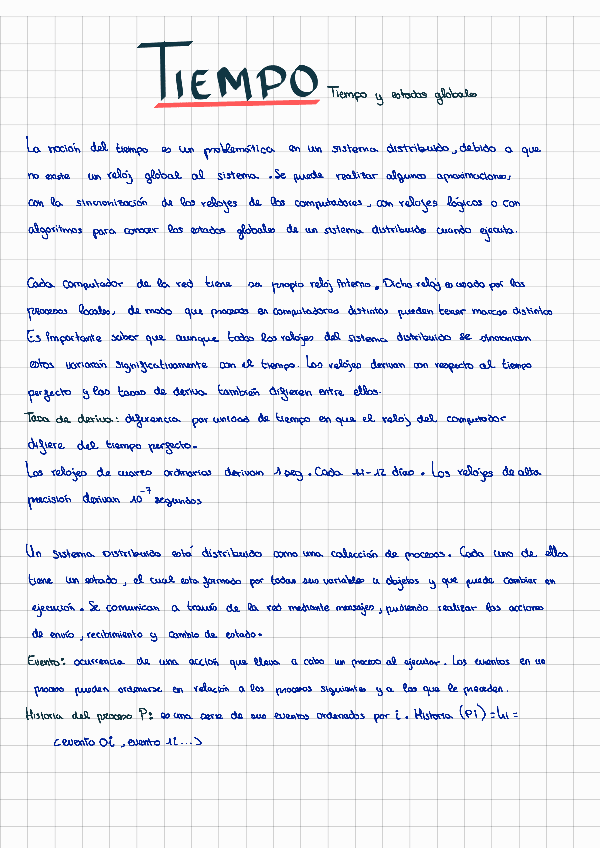 TIEMPO Tiempo y estados globales
La noción del tiempo es un problemática en un sistema distribuido, debido a que
no existe un reloj global al sistema. Se puede realizar algunas aproximaciones,
con la sincronización de los relojes de los computadores, con relojes lógicos o con
algoritmos para conocer los estados globales de un sistema distribuido cuando ejecuta.
Cada computador de la red tiene su propio reloj interno. Dicho reloj es usado por los
procesos locales, de modo que procesos en computadores distintos pueden tener marcas distintas
Es importante saber que aunque todos los relojes del sistema distribuido se sincronicen
estos variarán significativamente con el tiempo. Los relojes derivan con respecto al tiempo
perfecto y las tasas de deriva también difieren entre ellos.
Tasa de deriva: diferencia por unidad de tiempo en que el reloj del computador
difiere del tiempo perfecto.
Los relojes de cuarzo ordinarios derivan 1 seg. Cada 11-12 días. Los relojes de alta
precisión derivan 10⁻⁷ segundos
Un sistema Distribuido está distribuido como una colección de procesos. Cada uno de ellos
tiene un estado, el cual esta formado por todas sus variables u objetos y que puede cambiar en
ejecución. Se comunican a través de la red mediante mensajes, pudiendo realizar las acciones
de envío, recibimiento y cambio de estado.
Evento: ocurrencia de una acción que lleva a cabo un proceso al ejecutar. Los eventos en un
proceso pueden ordenarse en relación a los procesos siguientes y a los que le preceden.
Historia del proceso P: es una serie de sus eventos ordenados por i. Historia (Pi) = hi =
<evento 0i, evento 1i...>